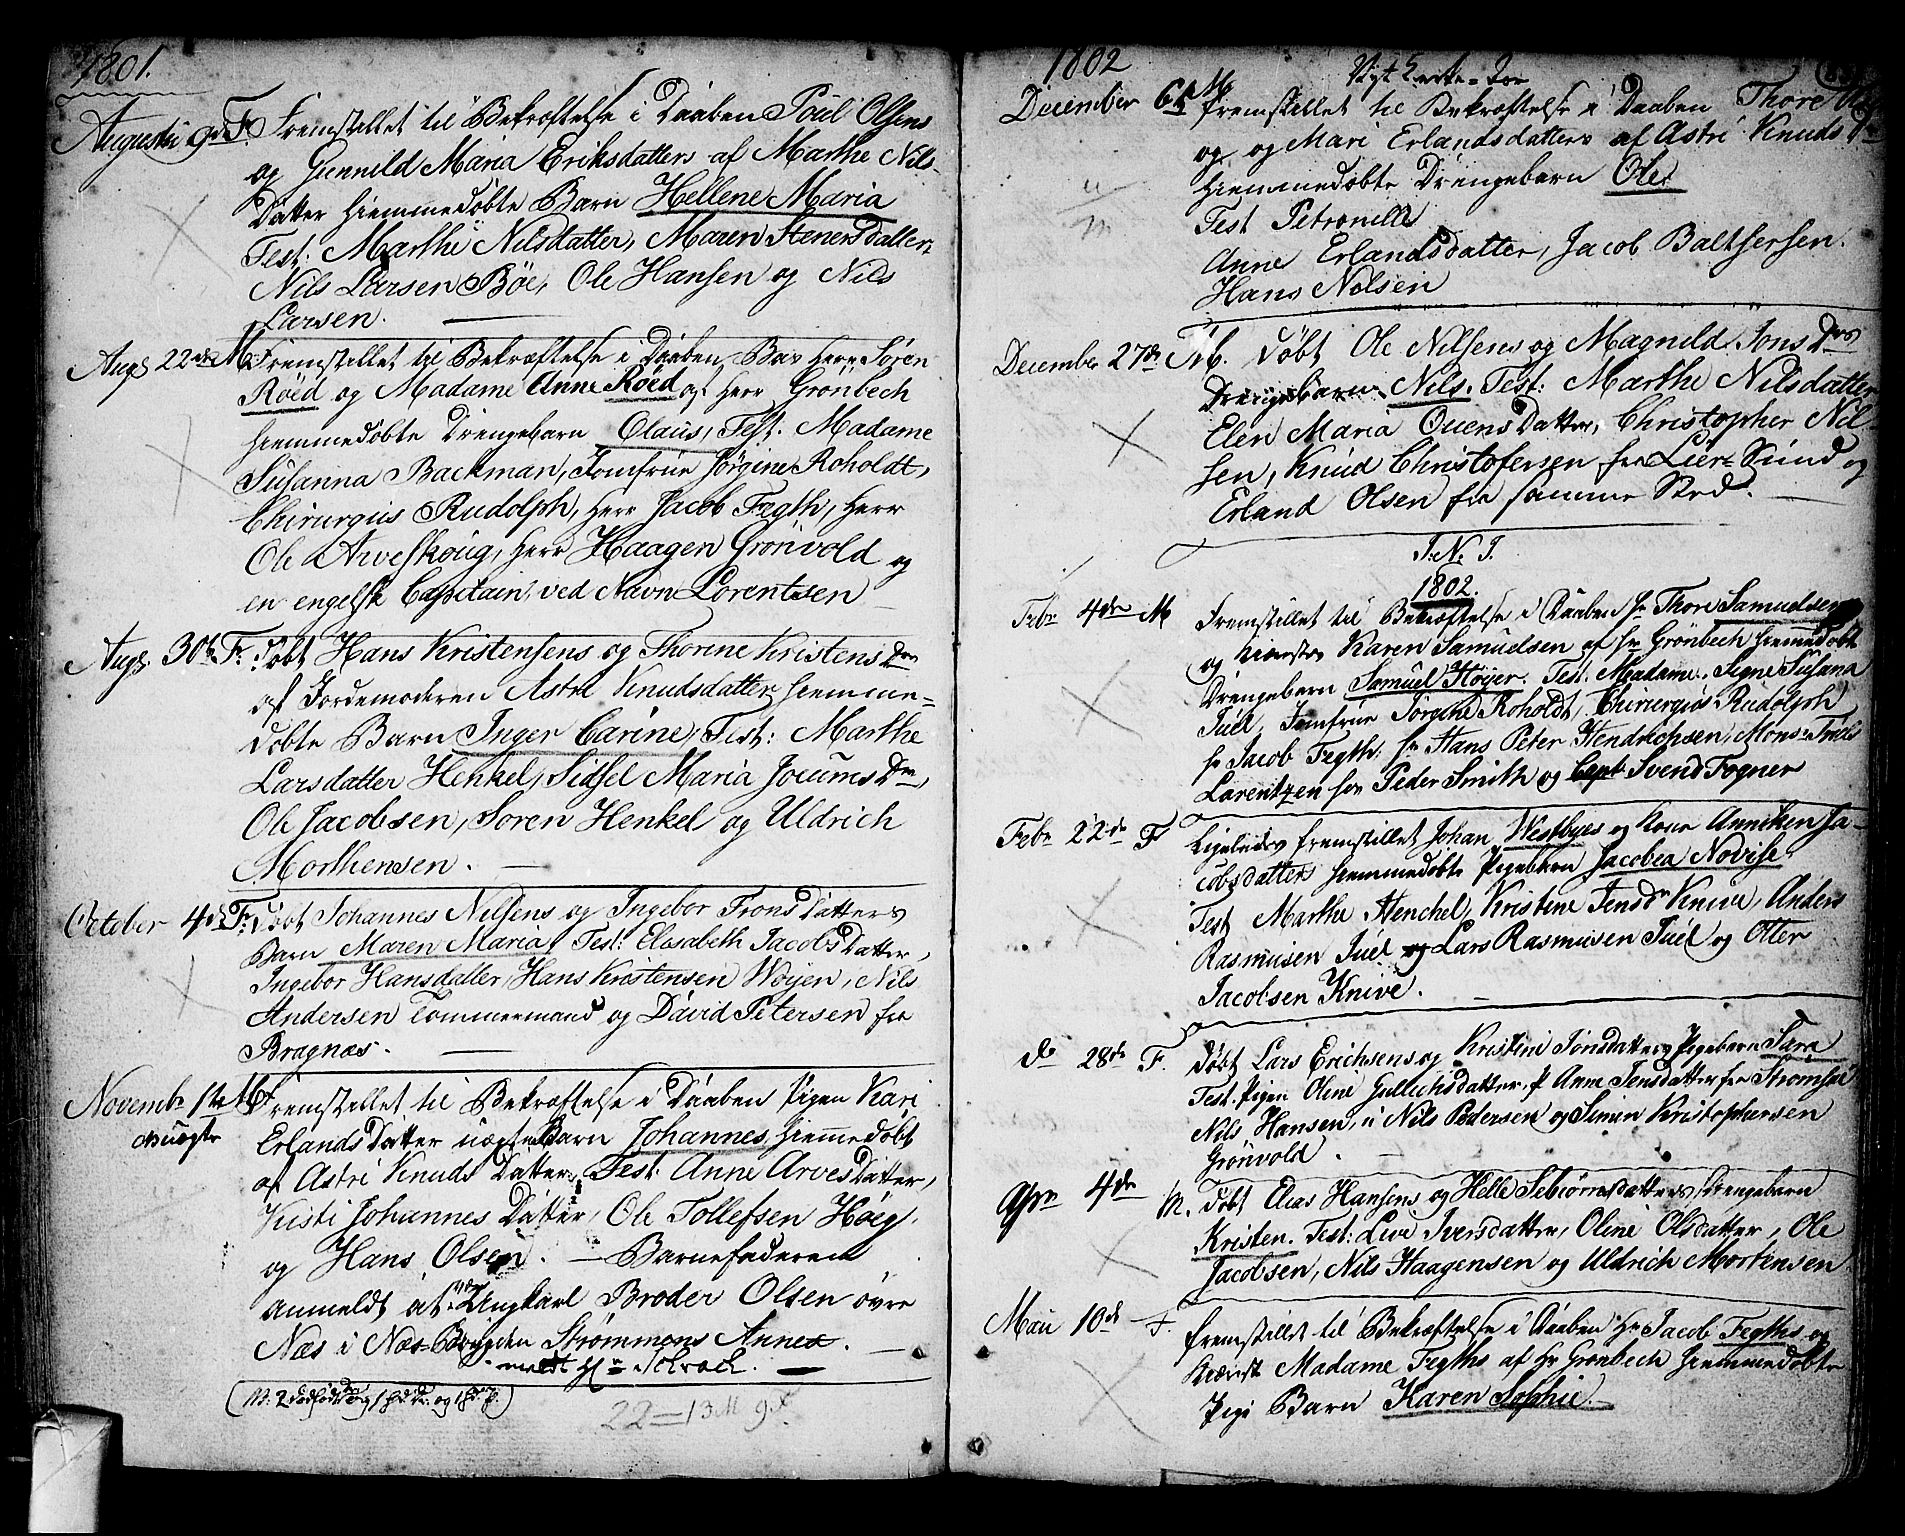 1801.
Augusti 9de F. Fremstillet til Bekræftelse i Daaben Poul Olsens
og Gunnild Maria Eriksdatters af Marthe Nils-
Datter hiemmedøbte Barn Hellene Maria
Test: Marthe Nilsdatter, Maren Stenersdatter,
Nils Larsen Bøe, Ole Hansen og Nils
Larsen.
Aug. 22de M. Fremstillet til Bekræftelse i Daaben Herr Sören
Röed og Madame Anne Roed af Herr Grönbech
hiemmedøbte Drengebarn Claus, Test: Madame
Susanna Backman, Jomfrue Jörgine Roholdt,
Chirurgus Rudolph, Herr Jacob Fegth, Herr
Ole Arveskoug, Herr Haagen Grönvold og
en engelsk Capitain, ved Navn Lorentsen
Aug. 30te F. Døbt Hans Kristensens og Thorine Kristens Dtrs
af Jordemoderen Astri Knudsdatter hiemme-
døbte Barn Inger Carine, Test: Marthe
Larsdatter Henkel, Sidsel Maria Jocums Dtr,
Ole Jacobsen, Soren Henkel og Uldrich
Morthensen.
October 4de F. Døbt Johannes Nilsens og Ingebor Trons Datters
Barn Maren Maria, Test: Elisabeth Jacobs Datter,
Ingebor Hansdatter, Hans Kristensen Woyen, Nils
Andersen Tømmermand og David Petersen fra
Bragnæs.
Novembr 1te M. Fremstillet til Bekræftelse i Daaben Pigen Kari
uægte Erlands Datter uægte Barn Johannes, hiemmedøbt
af Astri Knuds Datter, Test: Anne Arves Datter,
Kisti Johannes Datter, Ole Tollefsen Höeg,
og Hans Olsen. — Barnefaderen
anmeldt at være Ungkarl Broder Olsen øvre
Næs i Næs-Bøygden Strømmens Annex.
(NB: 2 dødfødte
22 = 13 M 9 F
1802
December 6te M. fremstillet til Bekræftelse i Daaben Thore
og og Mari Erlandsdatters af Astri Knuds Dtr
hiemmedøbte Drengebarn Ole
Test Petronille
Anne Erlandsdatter, Jacob Baltsersen.
Hans Nelsen
December 27de M. døbt Ole Nilsens og Magnild Jons Dtrs
Drengebarn Nils. Test: Marthe Nilsdatter
Elen Maria Ouens Datter, Christopher Nil-
sen, Knud Christofersen fra Lier-Sund og
Erland Olsen fra samme Sted.
I. N. J.
1802.
Febr 4de M Fremstillet til Bekræftelse i Daaben Hr Thore Samuelsens
og Kiæreste Karen Samuelsen af Hr Grönbech hiemmedøbt
Drengebarn Samuel Höyer. Test: Madame Signe Susana
Juel, Jomfrue Jorgine Roholdt, Chirurgus Rudolph
Hr Jacob Fegth, Hr Hans Peter Hendrichsen, Mons:
Larentzen hos Peder Smith og Capt Svend Fogner
Febr 22de F Ligeledes fremstillet Johan Westbyes og Kone Anniken Ja-
cobsdatters hiemmedøbte Pigebarn Jacobea Novise
Test Marthe Henchel, Kristine Jensdr Knive, Anders
Rasmusen Juel og Lars Rasmusen Juel og Otter
Jacobsen Knive.
do 28de F. Døbt Lars Erichsens og Kristine Jonsdatters Pigebarn Sara
Test: Pigen Oline Gullichsdatter, P Anne Jensdatter fra Strömsöe
Nils Hansen, Nils Pedersen og Simen Kristophersen
Grönvold.
Apr 4de M. Døbt Elias Hansens og Helle Sebiörnsdatters Drengebarn
Kristen. Test: Live Iversdatter, Oline Olsdatter, Ole
Jacobsen, Nils Haagensen og Uldrich Mortensen
Mai 10de F. fremstillet til Bekræftelse i Daaben Hr Jacob Fegths og
Kiærest Madame Fegths af Hr Grönbech hiemmedøbte
Pige Barn Karen Sophie.